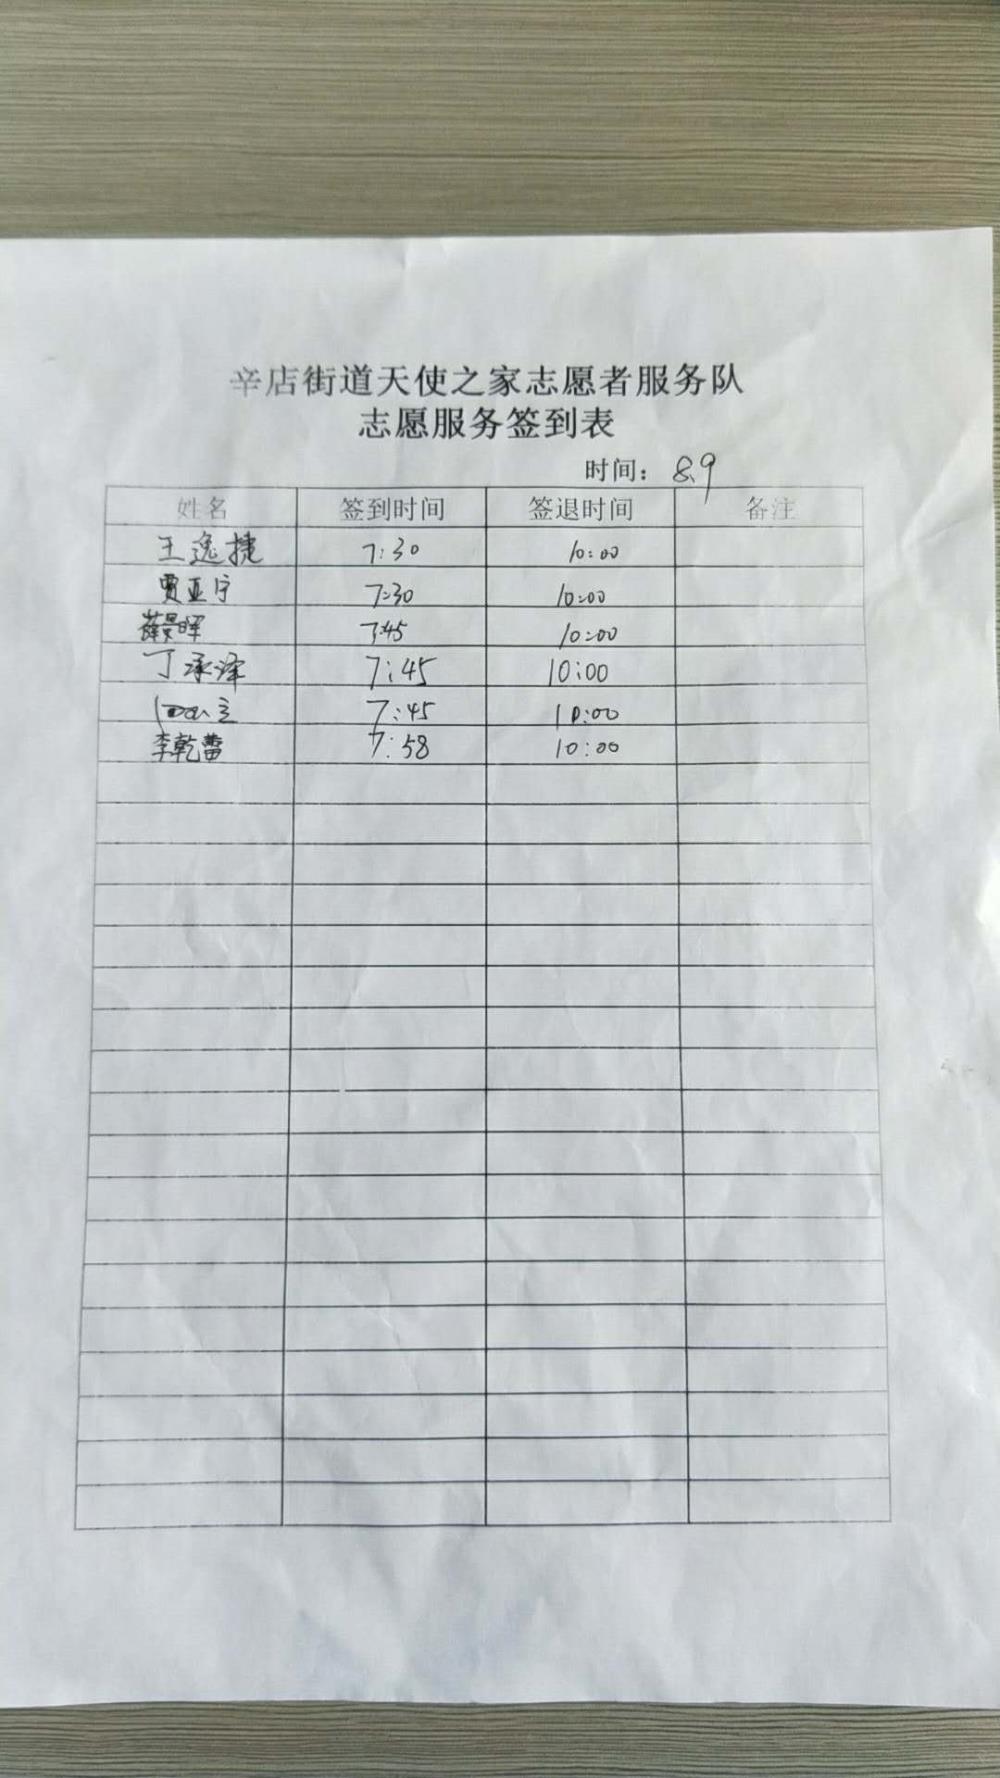 辛店街道天使之家志愿者服务队
志愿服务签到表
时间： 8.9
姓名 签到时间 签退时间 备注
王逸捷 7:30 10:00
贾亚宁 7:30 10:00
薛景晖 7:45 10:00
丁承泽 7:45 10:00
7:45 10:00
李乾蕾 7:58 10:00